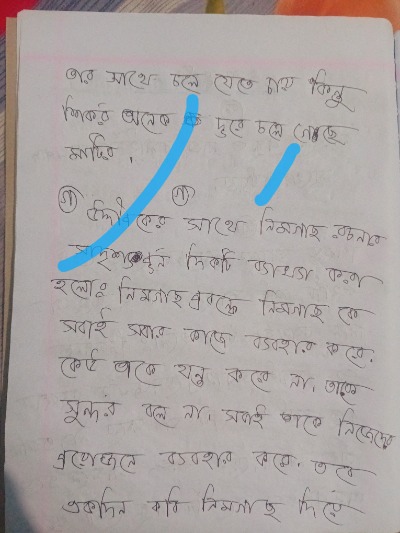 তার সাথে চলে যেতে চায় কিন্তু
শিকড় অনেক দূরে চলে গেছে
মাটির।
(গ) (গ)
উদ্দীপকের সাথে নিমগাছ রচনার
সাদৃশ্যপূর্ণ দিকটি ব্যাখ্যা করা
হলোঃ নিমগাছ প্রবন্ধে নিমগাছ কে
সবাই সবার কাজে ব্যবহার করে।
কেউ তাকে যত্ন করে না, তাকে
সুন্দর বলে না। সবাই তাকে নিজেদের
প্রয়োজনে ব্যবহার করে। তবে
একদিন কবি নিমগাছ দিয়ে